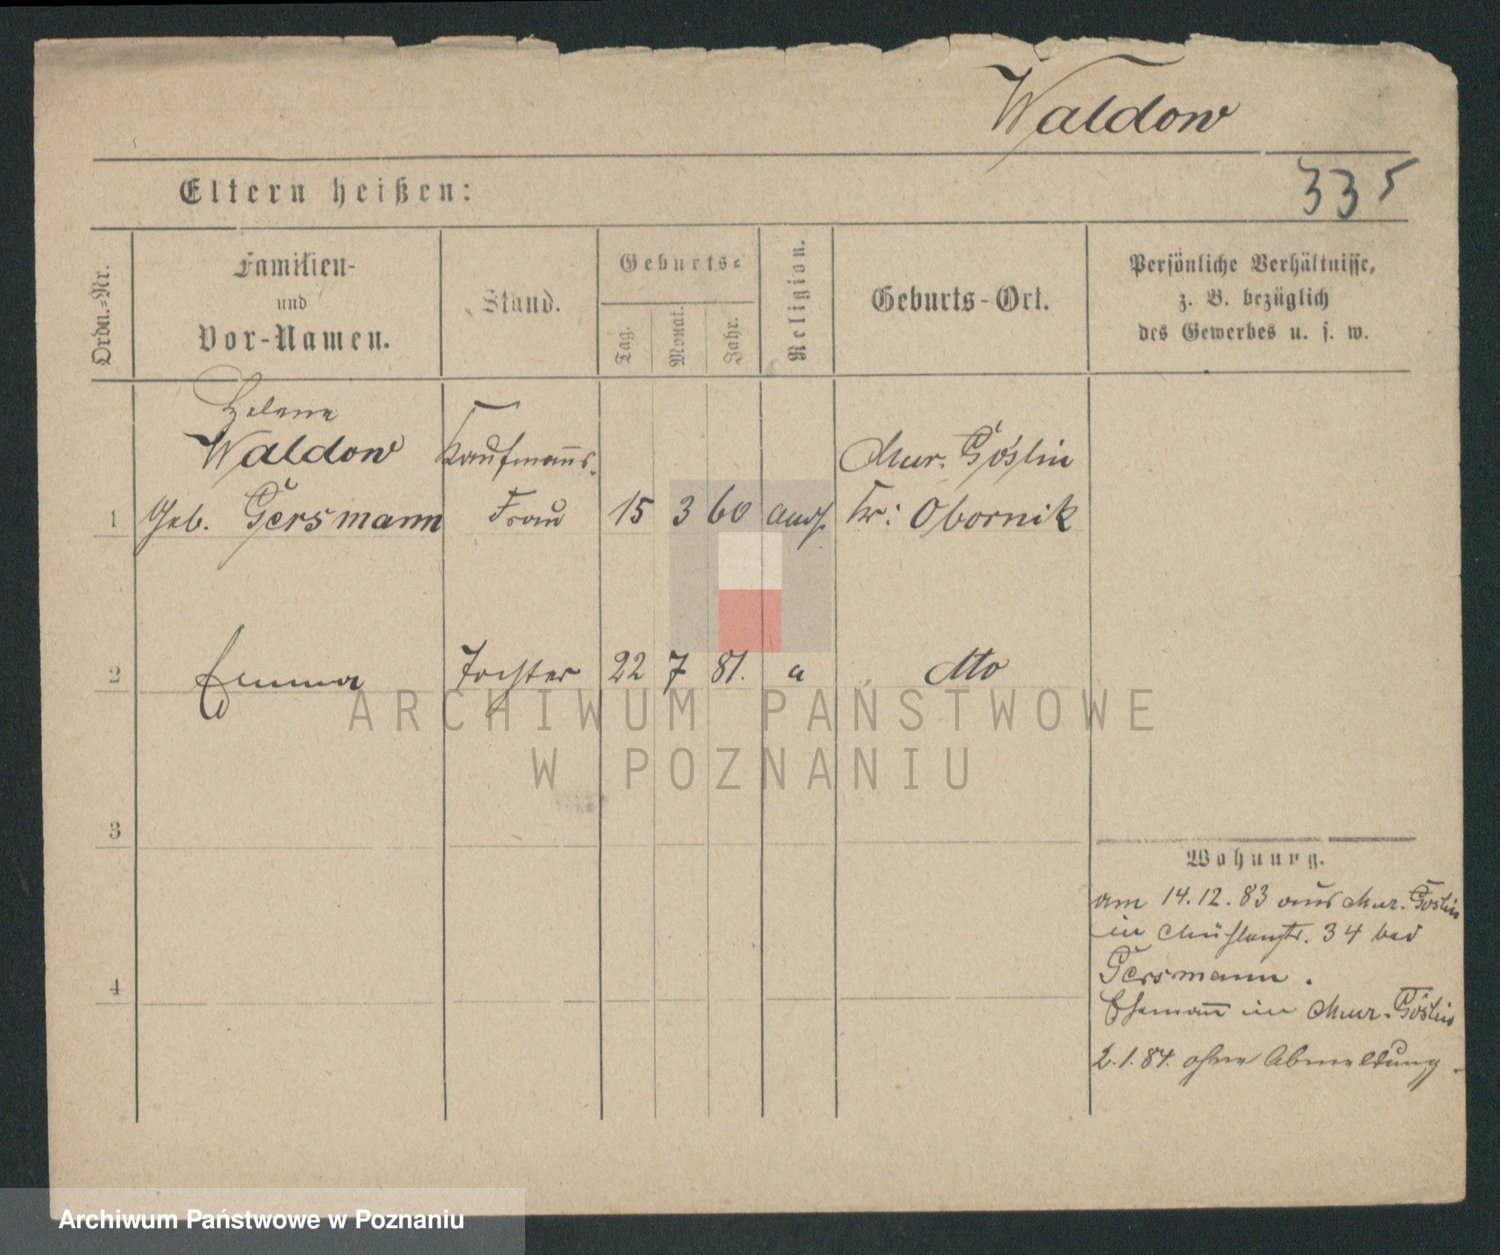 Waldow
335
Eltern heißen:
Ordn.-Nr.
Familien-
und
Vor-Namen.
Stand.
Geburts-
Tag.
Monat.
Jahr.
Religion.
Geburts-Ort.
Persönliche Verhältnisse,
z. B. bezüglich
des Gewerbes u. s. w.
Helene
Waldow
Kaufmanns-
Mur. Goslin
1 Geb. Gersmann Frau 15 3 60 Kr: Obornik
2 Emma Tochter 22 7 81. a dto
ARCHIWUM PAŃSTWOWE
W POZNANIU
3
Wohnung.
am 14.12.83 aus Mur. Goslin
in Mühlenstr. 34 bei
4
Gersmann.
Ehemann in Mur. Goslin
2.1.84. ohne Abmeldung.
Archiwum Państwowe w Poznaniu